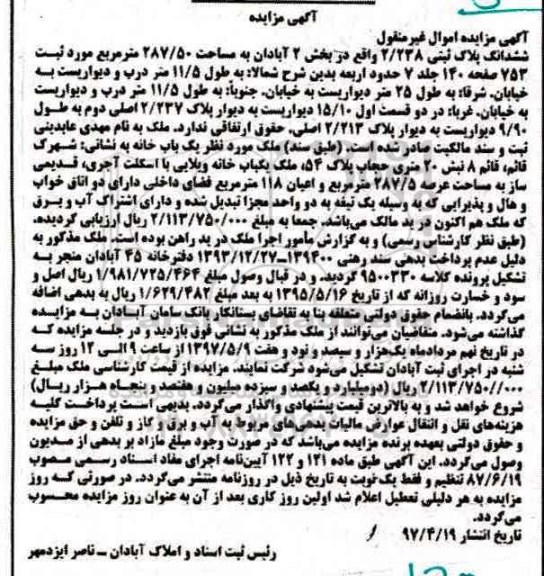 آگهی مزایده
آگهی مزایده اموال غیرمنقول
ششدانگ پلاک ثبتی ۲/۲۳۸ واقع در بخش ۲ آبادان به مساحت ۲۸۷/۵۰ مترمربع مورد ثبت
۷۵۳ صفحه ۱۴۰ جلد ۷ حدود اربعه بدین شرح شمالا: به طول ۱۱/۵ متر درب و دیواریست به
خیابان. شرقا: به طول ۲۵ متر دیواریست به خیابان. جنوباً: به طول ۱۱/۵ متر درب و دیواریست
به خیابان. غربا: در دو قسمت اول ۱۵/۱۰ دیواریست به دیوار پلاک ۲/۲۳۷ اصلی دوم به طول
۹/۹۰ دیواریست به دیوار پلاک ۲/۲۱۳ اصلی. حقوق ارتفاقی ندارد. ملک به نام مهدی عابدینی
ثبت و سند مالکیت صادر شده است. (طبق سند) ملک مورد نظر یک باب خانه به نشانی: شهرک
قائم، قائم ۸ نبش ۲۰ متری حجاب پلاک ۵۴، ملک یکباب خانه ویلایی با اسکلت آجری، قدیمی
ساز به مساحت عرصه ۲۸۷/۵ مترمربع و اعیان ۱۱۸ مترمربع فضای داخلی دارای دو اتاق خواب
و هال و پذیرایی که به وسیله یک تیغه به دو واحد مجزا تبدیل شده و دارای اشتراک آب و برق
که ملک هم اکنون در ید مالک می‌باشد. جمعا به مبلغ ۲/۱۱۳/۷۵۰/۰۰۰ ریال ارزیابی گردیده.
(طبق نظر کارشناس رسمی) و به گزارش مأمور اجرا ملک در ید راهن بوده است. ملک مذکور به
دلیل عدم پرداخت بدهی سند رهنی ۱۳۹۴۰۰-۱۳۹۳/۱۲/۲۷ دفترخانه ۴۵ آبادان منجر به
تشکیل پرونده کلاسه ۹۵۰۰۳۳۰ گردید. و در قبال وصول مبلغ ۱/۹۸۱/۷۲۵/۴۶۴ ریال اصل و
سود و خسارت روزانه که از تاریخ ۱۳۹۵/۵/۱۶ به بعد مبلغ ۱/۶۲۹/۴۸۲ ریال به بدهی اضافه
می‌گردد. بانضمام حقوق دولتی متعلقه بنا به تقاضای بستانکار بانک سامان آبادان به مزایده
گذاشته می‌شود. متقاضیان می‌توانند از ملک مذکور به نشانی فوق بازدید و در جلسه مزایده که
در تاریخ نهم مردادماه یک‌هزار و سیصد و نود و هفت ۱۳۹۷/۵/۹ از ساعت ۹ الی ۱۲ روز سه
شنبه در اجرای ثبت آبادان تشکیل می‌شود شرکت نمایند. مزایده از قیمت کارشناسی ملک مبلغ
۲/۱۱۳/۷۵۰//۰۰۰ ریال (دومیلیارد و یکصد و سیزده میلیون و هفتصد و پنجاه هزار ریال)
شروع خواهد شد و به بالاترین قیمت پیشنهادی واگذار می‌گردد. بدیهی است پرداخت کلیه
هزینه‌های نقل و انتقال عوارض مالیات بدهی‌های مربوط به آب و برق و گاز و تلفن و حق مزایده
و حقوق دولتی بعهده برنده مزایده می‌باشد که در صورت وجود مبلغ مازاد بر بدهی از مدیون
وصول می‌گردد. این آگهی طبق ماده ۱۲۱ و ۱۲۲ آیین‌نامه اجرای مفاد اسناد رسمی مصوب
۸۷/۶/۱۹ تنظیم و فقط یک نوبت به تاریخ ذیل در روزنامه منتشر می‌گردد. در صورتی که روز
مزایده به هر دلیلی تعطیل اعلام شد اولین روز کاری بعد از آن به عنوان روز مزایده محسوب
می‌گردد.
تاریخ انتشار ۹۷/۴/۱۹
رئیس ثبت اسناد و املاک آبادان ــ ناصر ایزدمهر